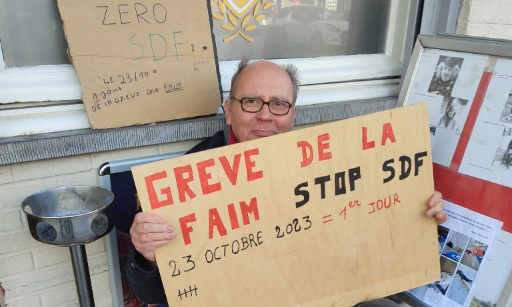 ZERO
SDF!
LE 23/10 =
1 JOUR
DE LA GREVE DE LA FAIM
GREVE DE LA
FAIM STOP SDF
23 OCTOBRE 2023 = 1er JOUR